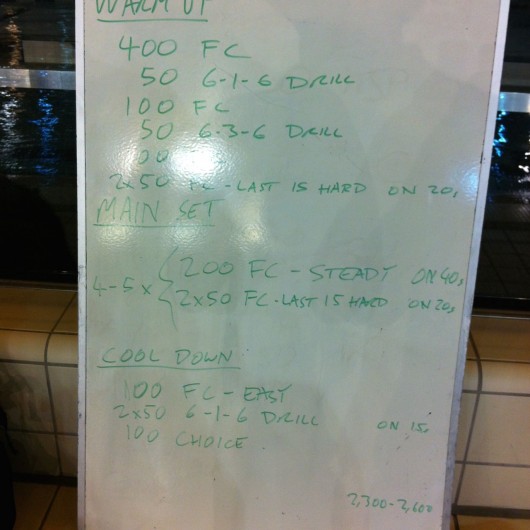 WARM UP
400 FC
50 6-1-6 DRILL
100 FC
50 6-3-6 DRILL
00
2x50 FC - LAST 15 HARD ON 20s
MAIN SET
4-5 x
200 FC - STEADY ON 40s
2x50 FC - LAST 15 HARD ON 20s
COOL DOWN
100 FC - EASY
2x50 6-1-6 DRILL ON 15s
100 CHOICE
2,300-2,600